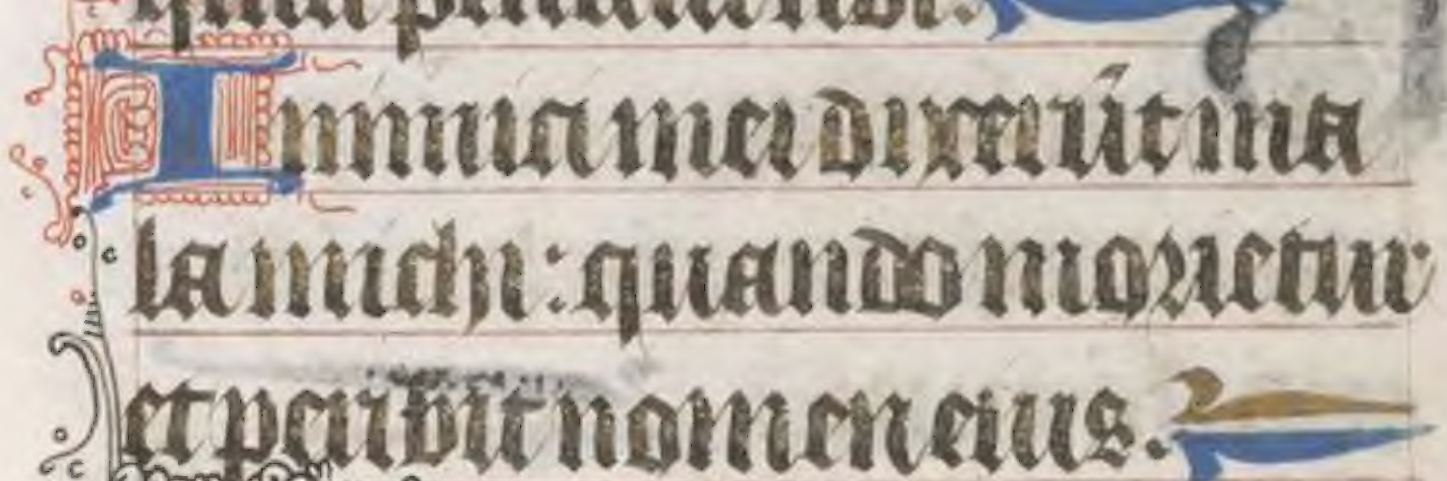 Inimici mei dixerūt ma
la michi : quando morietur
et peribit nomen eius.